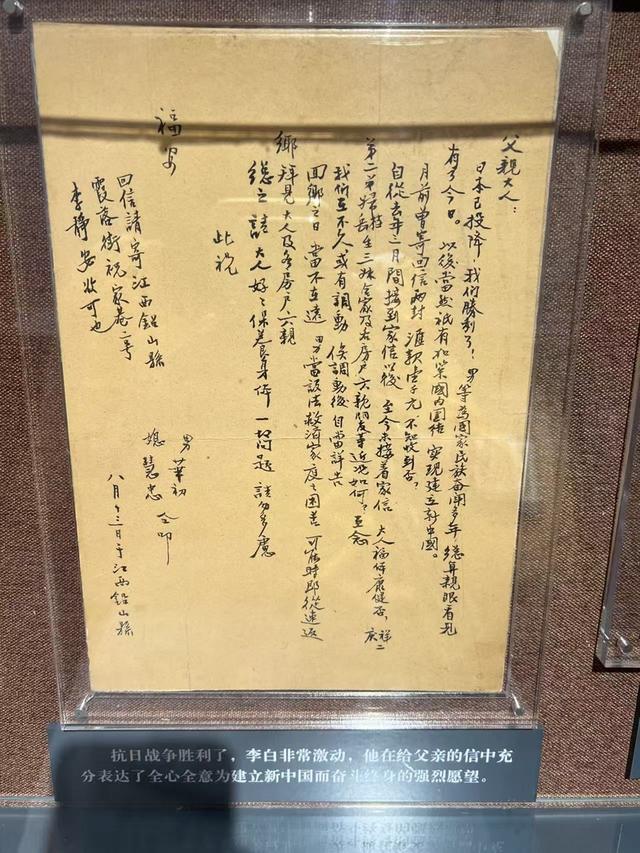 父親大人：
日本已投降！我們勝利了！男等為國家民族奋闘多年，總算親眼看見
有了今日。以後當然祇有加策國內團結 實現建立新中國。
月前曾寄回信两封 滙款壹千元 不知收到否？
自從去年二月間接到家信以後 至今未接着家信 大人福体康健否，祥二 庆
第二弟 岳生三妹全家及右房戶六親朋友等近况如何？至念
我們在不久或有調動 俟調動後自當詳告
回鄉之日 當不在遠 男當設法救濟家庭之困苦 可能時即從速返
鄉拜見大人及各房戶六親
總之 請大人好々保養身体 一切問題 請勿多慮
此祝
福安
男 華初
媳 慧忠 仝叩
八月十三日于江西鉛山縣
回信請寄江西鉛山縣
霞落街祝家巷二号
李靜安收可也
抗日战争胜利了，李白非常激动，他在给父亲的信中充
分表达了全心全意为建立新中国而奋斗终身的强烈愿望。